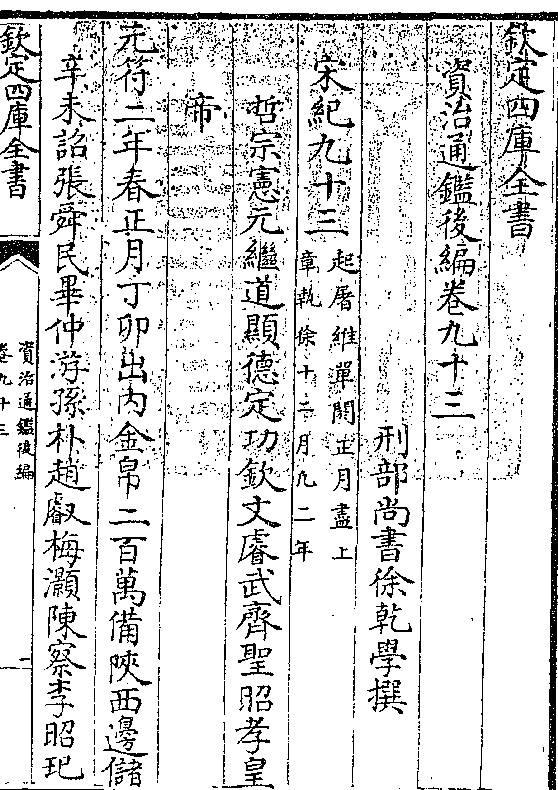 欽定四庫全書
資治通鑑後編卷九十三
刑部尚書徐乾學撰
宋紀九十三
起屠維單閼正月盡上
章執徐十二月凡二年
哲宗憲元繼道顯德定功欽文睿武齊聖昭孝皇
帝
元符二年春正月丁卯出内金帛二百萬備陜西邊儲
辛未詔張舜民畢仲游孫朴趙叡梅灝陳察李昭玘
欽定四庫全書
資治通鑑後編
卷九十三
一